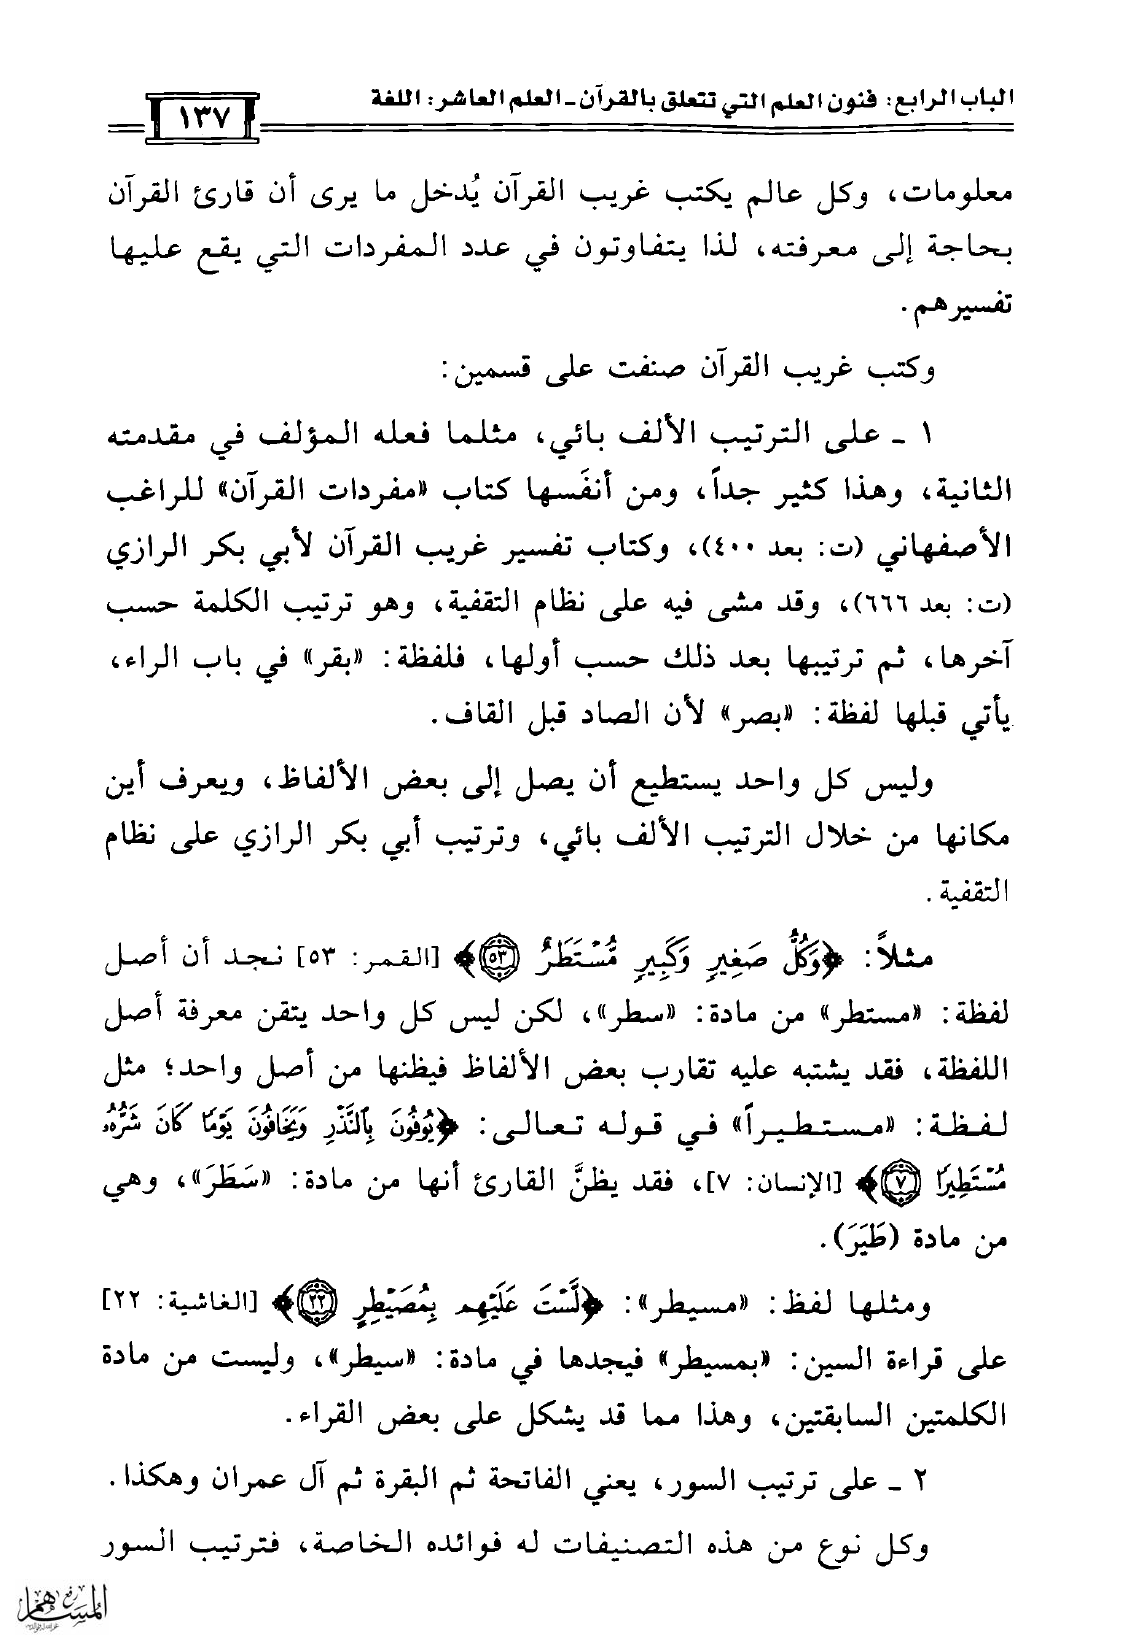 الباب الرابع: فنون العلم التي تتعلق بالقرآن ـ العلم العاشر: اللغة
١٣٧
معلومات، وكل عالم يكتب غريب القرآن يُدخل ما يرى أن قارئ القرآن
بحاجة إلى معرفته، لذا يتفاوتون في عدد المفردات التي يقع عليها
تفسيرهم.
وكتب غريب القرآن صنفت على قسمين:
١ ـ على الترتيب الألف بائي، مثلما فعله المؤلف في مقدمته
الثانية، وهذا كثير جداً، ومن أنفَسها كتاب «مفردات القرآن» للراغب
الأصفهاني (ت: بعد ٤٠٠)، وكتاب تفسير غريب القرآن لأبي بكر الرازي
(ت: بعد ٦٦٦)، وقد مشى فيه على نظام التقفية، وهو ترتيب الكلمة حسب
آخرها، ثم ترتيبها بعد ذلك حسب أولها، فلفظة: «بقر» في باب الراء،
يأتي قبلها لفظة: «بصر» لأن الصاد قبل القاف.
وليس كل واحد يستطيع أن يصل إلى بعض الألفاظ، ويعرف أين
مكانها من خلال الترتيب الألف بائي، وترتيب أبي بكر الرازي على نظام
التقفية.
مثلاً: ﴿وَكُلُّ صَغِيرٍ وَكَبِيرٍ مُّسْتَطَرٌ ۝٥٣﴾ [القمر: ٥٣] نجد أن أصل
لفظة: «مستطر» من مادة: «سطر»، لكن ليس كل واحد يتقن معرفة أصل
اللفظة، فقد يشتبه عليه تقارب بعض الألفاظ فيظنها من أصل واحد؛ مثل
لفظة: «مستطيراً» في قوله تعالى: ﴿يُوفُونَ بِالنَّذْرِ وَيَخَافُونَ يَوْمًا كَانَ شَرُّهُ
مُسْتَطِيرًا ۝٧﴾ [الإنسان: ٧]، فقد يظنَّ القارئ أنها من مادة: «سَطَرَ»، وهي
من مادة (طَيَرَ).
ومثلها لفظ: «مسيطر»: ﴿لَّسْتَ عَلَيْهِم بِمُصَيْطِرٍ ۝٢٢﴾ [الغاشية: ٢٢]
على قراءة السين: «بمسيطر» فيجدها في مادة: «سيطر»، وليست من مادة
الكلمتين السابقتين، وهذا مما قد يشكل على بعض القراء.
٢ ـ على ترتيب السور، يعني الفاتحة ثم البقرة ثم آل عمران وهكذا.
وكل نوع من هذه التصنيفات له فوائده الخاصة، فترتيب السور